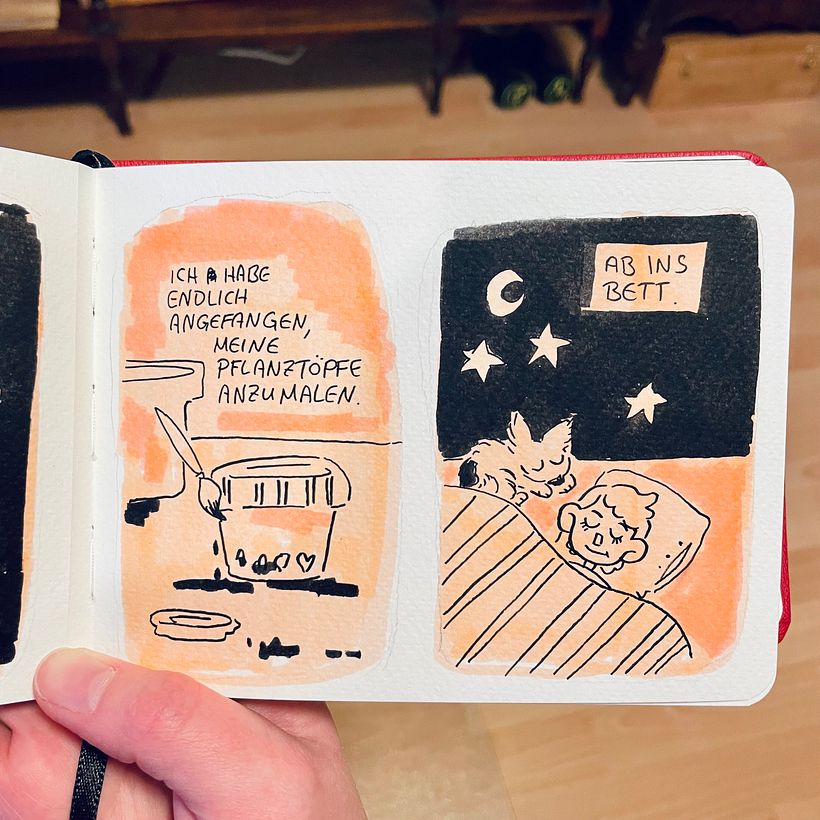 ICH HABE
ENDLICH
ANGEFANGEN,
MEINE
PFLANZTÖPFE
ANZUMALEN.
AB INS
BETT.